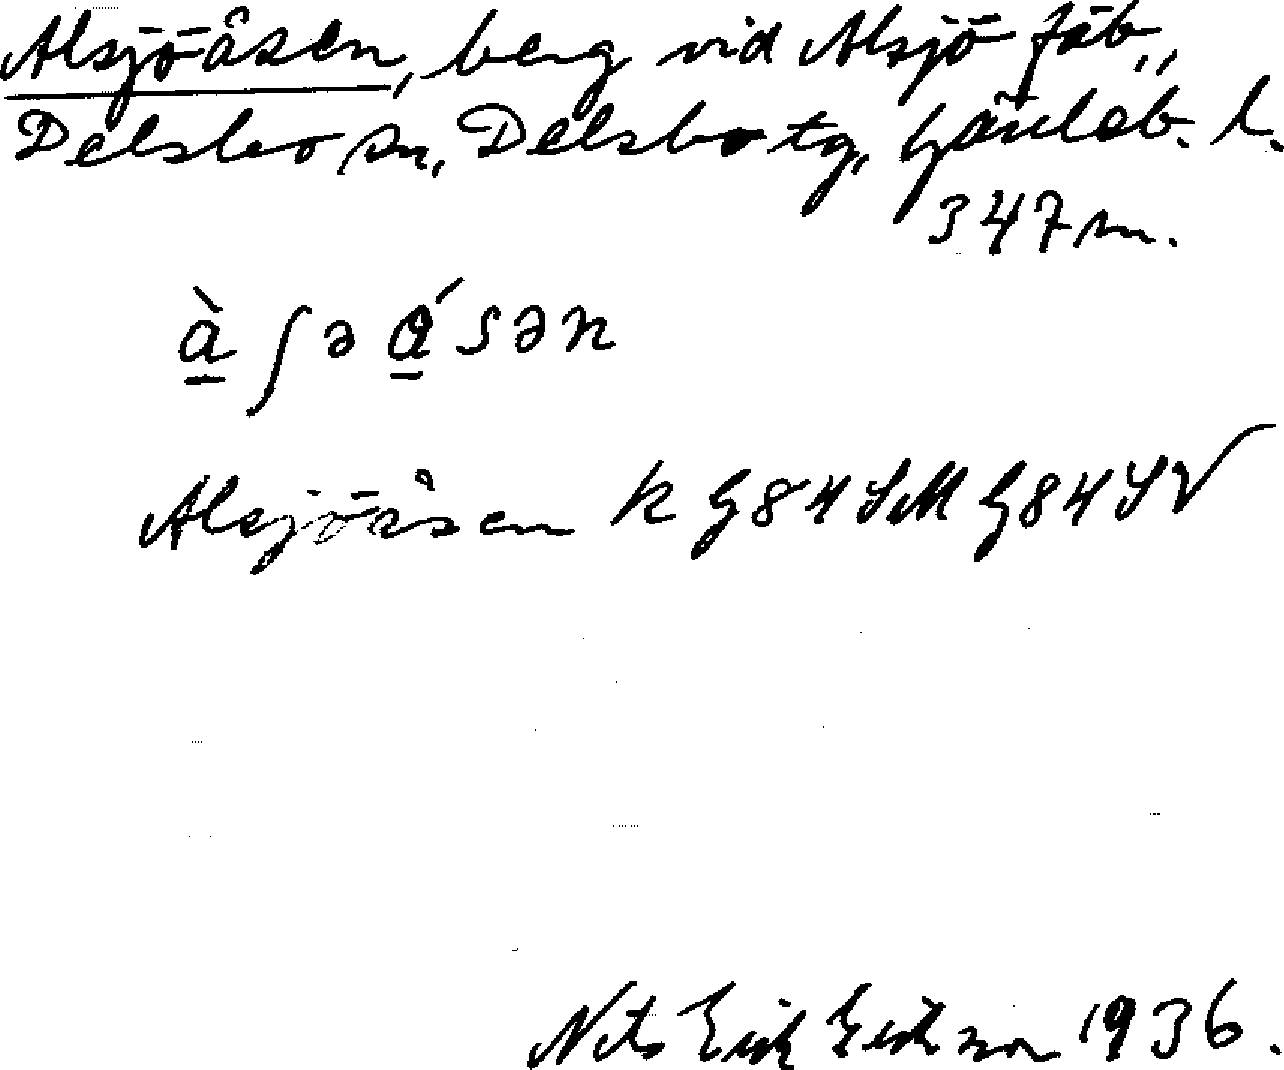 Alsjöåsen, berg vid Alsjö fäb.,
Delsbo sn, Delsbo tg, Gävleb. l.
347 m.
à̱ ʃə á̱sən
Alsjöåsen k G84SM G84SV
Nils Erik Eriksson 1936.